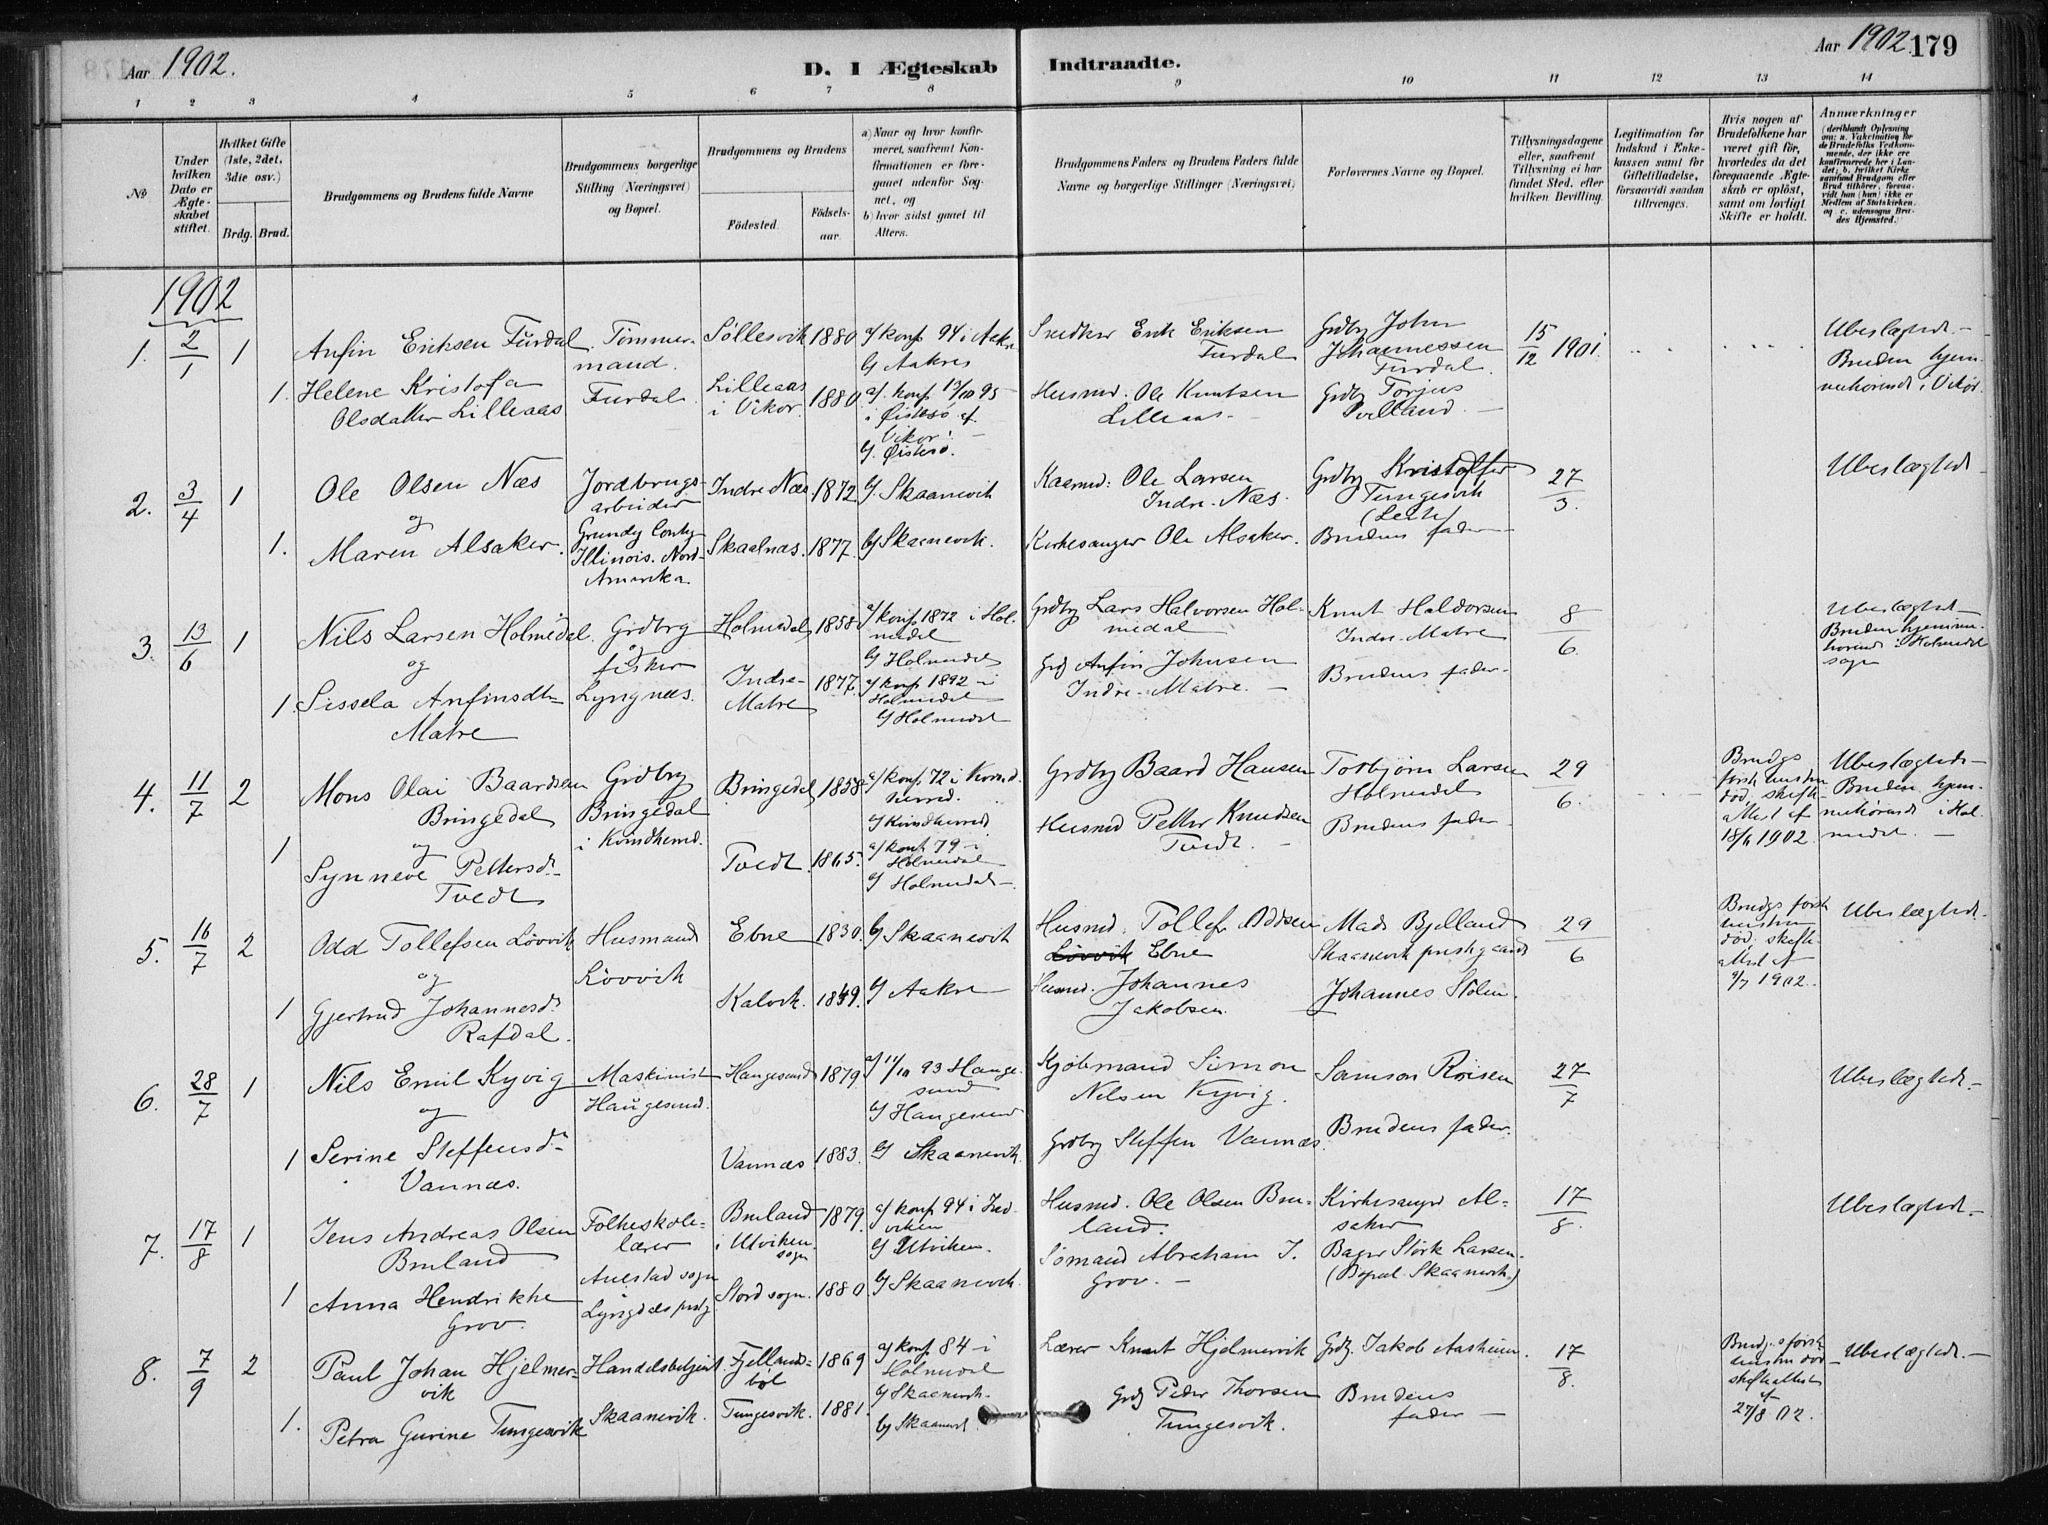 Aar 1902.
D. I Ægteskab Indtraadte.
Aar 1902. 179
1 2 3 4 5 6 7 8 9 10 11 12 13 14
No
Under hvilken Dato er Ægteskabet stiftet.
Hvilket Gifte (1ste, 2det, 3die osv.)
Brdg. Brud.
Brudgommens og Brudens fulde Navne
Brudgommens borgerlige Stilling (Næringsvei) og Bopæl.
Brudgommens og Brudens
Födested. Födsels-aar.
a) Naar og hvor konfirmeret, saafremt Konfirmationen er foregaaet udenfor Sognet, og
b) hvor sidst gaaet til Alters.
Brudgommens Faders og Brudens Faders fulde Navne og borgerlige Stillinger (Næringsvei)
Forlovernes Navne og Bopæl.
Tillysningsdagene eller, saafremt Tillysning ei har fundet Sted, efter hvilken Bevilling.
Legitimation for Indskud i Enkekassen samt for Giftetilladelse, forsaavidt saadan tiltrænges.
Hvis nogen af Brudefolkene har været gift før, hvorledes da det foregaaende Ægteskab er oplöst, samt om lovligt Skifte er holdt.
Anmærkninger (deriblandt Oplysning om: a. Vakcination for de Brudefolks Vedkommende, der ikke ere konfirmerede her i Landet; b. hvilket Kirkesamfund Brudgom eller Brud tilhörer, forsaavidt han (hun) ikke er Medlem af Statskirken, og c. udensogns Brudes Hjemsted.)
1902
1. 2/1 1 Anfin Eriksen Furdal. Tömmermand. Furdal. Söllesvik 1880 a/ konf 94 i Aakre b/ Aakres Erik Eriksen Furdal Grdbr John Johannessen Furdal. 15/12 1901. Ubeslægtede. Bruden hjemmehörende i Vikör.
1. Helene Kristofa Olsdatter Lilleaas Lilleaas i Vikör. 1880 a/ konf 13/10 95 i Östesö af Vikör. b/ Östesö. Husmd. Ole Knutsen Lilleaas Grdbr Torjus
2. 3/4 1 Ole Olsen Næs og Jordbrugsarbeider Grundy Conty Illinois. Nord-Amerika. Indre Næs 1872 b/ Skaanevik Kaarmd: Ole Larsen Indre-Næs. Grdbr Kristoffer Tungesvik 27/3. Ubeslægted
1. Maren Alsaker. Skaalnæs. 1877. b/ Skaanevik. Kirkesanger Ole Alsaker. Brudens fader
3. 13/6 1 Nils Larsen Holmedal og Grdbrg og fisker Lyngnes. Holmedal 1858 a/ konf 1872 i Holmedal b/ Holmedal Grdbr Lars Halvorsen Holmedal Knut Haldorsen Indre-Matre 8/6. Ubeslægted Bruden hjemmehörend i Holmedal sogn
1. Sissela Anfinsdtr Matre Indre-Matre 1877. a/ konf 1892 i Holmedal b/ Holmedal Grd Anfin Johnsen Indre-Matre. Brudens fader
4. 11/7 2 Mons Olai Baardsen Bringedal og Grdbrg Bringedal i Kvindherred. Bringedal 1858 a/ konf 72 i Kvindherred. b/ Kvindherred Grdbr Baard Hansen Torbjörn Larsen Holmedal 29/6. Brudgs første hustru död, skifteattest af 18/6 1902. Ubeslægtede Bruden hjemmehörende i Holmedal.
1 Synneve Pettersd. Tvedt Tvedt. 1865. a/ konf 79 i Holmedal b/ Holmedal. Husmd Petter Knudsen Tvedt. Brudens fader
5. 16/7 2 Odd Tollefsen Lövvik og Husmand Lövvik Ebne 1830. b/ Skaanevik Husmd. Tollef Oddsen Lövvik Ebne Mads Bjelland Skaanevik prestegaard 29/6 Brudgs første hustru död. skifteattest af 9/7 1902. Ubeslægted.
1 Gjertrud Johannesd. Rafdal. Kalvik. 1849. b/ Aakre Husmd. Johannes Jakobsen. Johannes Stölen.
6. 28/7 1 Nils Emil Kyvig og Maskinist Haugesund. Haugesund 1879 a/ 11/10 93 Haugesund b/ Haugesund Kjöbmand Simon Nilsen Kyvig. Samson Röisen 27/7 Ubeslægted.
1 Serine Steffensd. Vannæs. Vannæs 1883. b/ Skaanevik. Grdbr Steffen Vannæs Brudens fader.
7. 17/8 1 Jens Andreas Olsen Bruland Folkeskolelærer Bruland i Utviken sogn 1879. a/ konf 94 i Indviken b/ Utviken. Husmd. Ole Olsen Bruland. Kirkesanger Alsaker 17/8. Ubeslægted.
1 Anna Hendrikke Grov. Lyngdals prstg Stord sogn. 1880 b/ Skaanevik. Sömand Abraham J. Grov. Bager Störk Larsen. (Bopæl Skaanevik)
8. 7/9 2 Paul Johan Hjelmervik Handelsbetjent Skaanevik. 1869 a/ konf 84 i Holmedal b/ Skaanevik. Lærer Knut Hjelmervik Grdg. Jakob Aasheim. 17/8. Brudgs første hustru död skifteattest af 27/8 02. Ubeslægted.
1. Petra Gurine Tungesvik Tungesvik. 1881. b/ Skaanevik. Grdg Peder Thorsen Tungesvik. Brudens fader